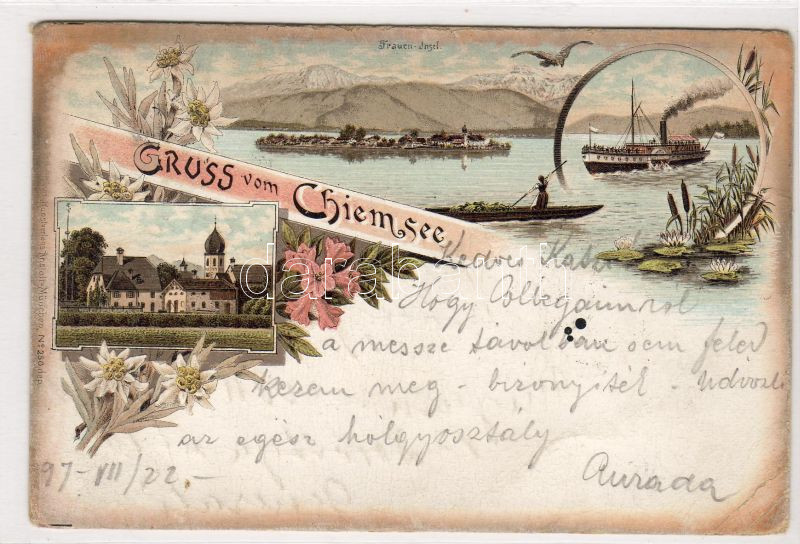 Frauen-Insel.
GRUSS vom Chiemsee
Kedves
Hogy Collegáimról
a messze távolban sem feled
kezem meg - bizonyítél - üdvözli
az egész hölgyosztály
97-VII/22-
Aurada
darabanth
München, No 250